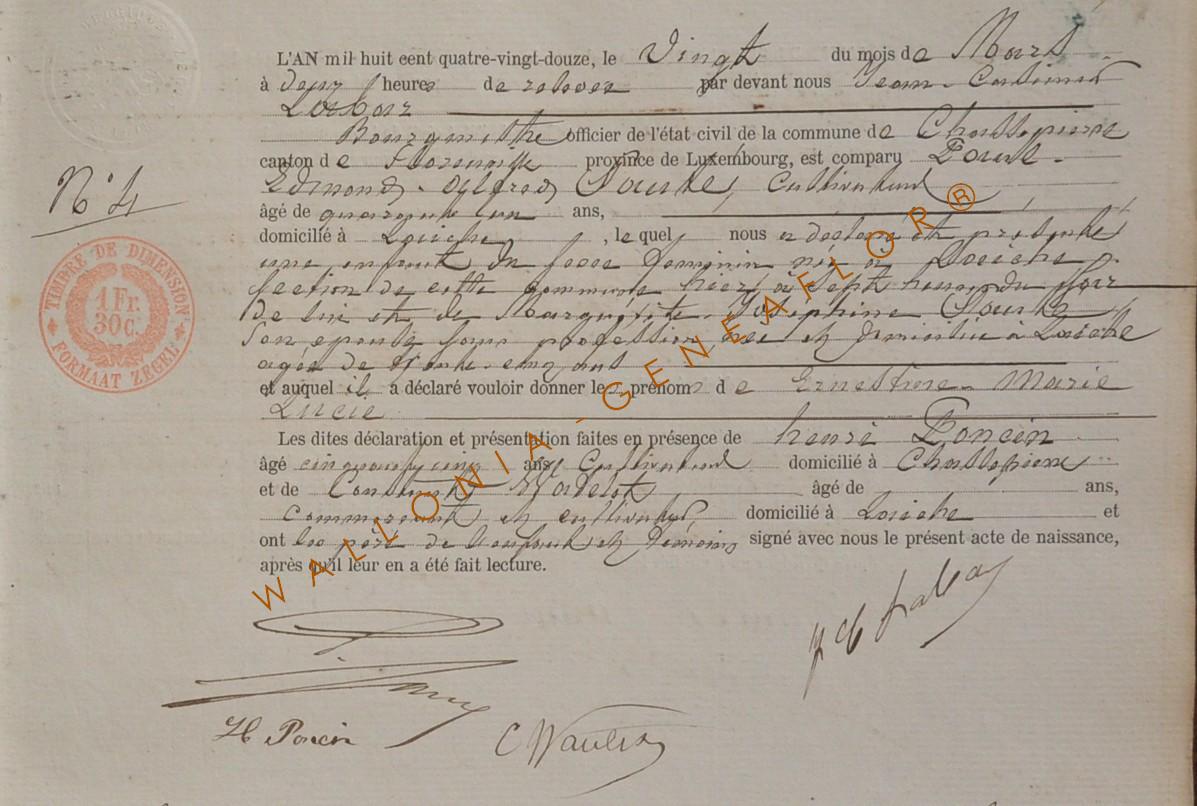 L'AN mil huit cent quatre-vingt-douze, le Vingt du mois de Mars
à deux heures de relevée par devant nous Jean-
Bourgmestre officier de l'état civil de la commune de Chassepierre
canton de Florenville province de Luxembourg, est comparu
Edmond-Alfred cultivateur
N° 4
âgé de quarante un ans,
domicilié à Laiche, lequel nous a déclaré et présenté
TIMBRE DE DIMENSION
1 Fr.
30 C.
FORMAAT ZEGEL
une enfant du sexe féminin née à Laiche
section de cette commune hier à sept heures du soir
de lui et de Marguerite-Joséphine
son épouse sans profession née et domiciliée à Laiche
âgée de trente-cinq ans
et auquel il a déclaré vouloir donner les prénoms de Ernestine-Marie
Lucie
Les dites déclaration et présentation faites en présence de henri Poncin
âgé cinquante cinq ans Cultivateur domicilié à Chassepierre
et de Constant âgé de ans,
commerçant et cultivateur domicilié à Laiche et
ont les père de l'enfant et témoins signé avec nous le présent acte de naissance,
après qu'il leur en a été fait lecture.
H Poncin
C
WALLONIA-GENEAFLOR®